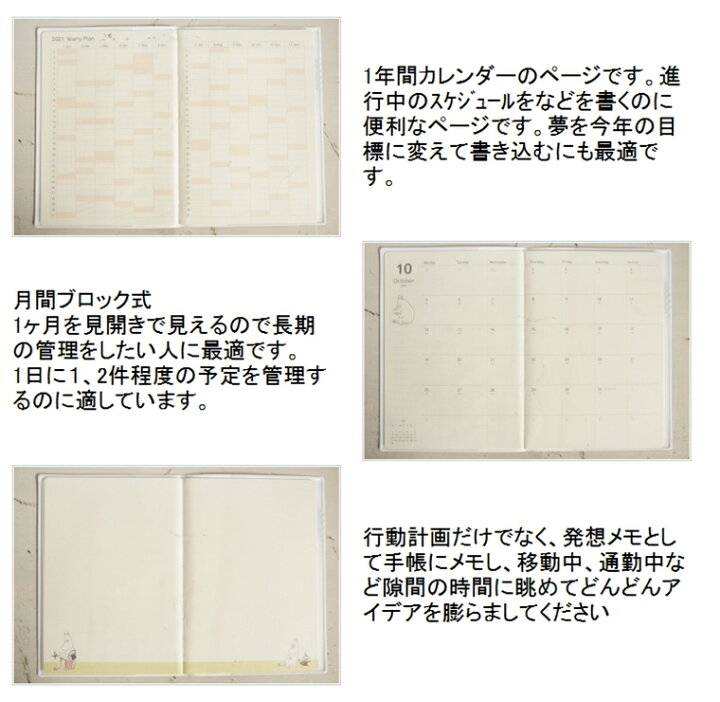 2021 Yearly Plan
1年間カレンダーのページです。進
行中のｽｹｼﾞｭールをなどを書くのに
便利なページです。夢を今年の目
標に変えて書き込むにも最適で
す。
10
October
月間ブロック式
1ヶ月を見開きで見えるので長期
の管理をしたい人に最適です。
1日に１、2件程度の予定を管理す
るのに適しています。
行動計画だけでなく、発想メモとし
て手帳にメモし、移動中、通勤中な
ど隙間の時間に眺めてどんどんア
イデアを膨らましてください